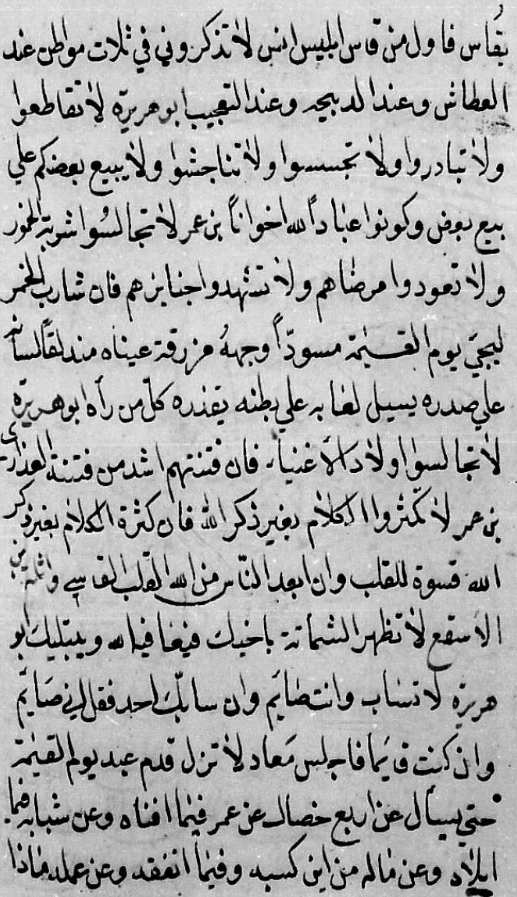 يقاس فاول من قاس ابليس انس لا تذكروني في ثلاث مواطن عند
العطاش وعند الدبيحه وعند التعجيب ابو هريرة لا تقاطعوا
ولا تبادروا ولا تجسسوا ولا تناجشوا ولا يبيع بعضكم علي
بيع بعض وكونوا عباداً لله اخواناً بن عمر لا تجالسُوا شربة الخمور
ولا تعودوا مرضاهم ولا تشهدوا جنايزهم فان شارب الخمر
ليجي يوم القيٰمة مسودّاً وجههُ مزرقة عيناه مندلقاً لسانه
علي صدره يسيل لعابه علي بطنه يقذره كلّ من رأه ابو هريرة
لا تجالسوا اولاد الاغنياء فان فتنتهم اشد من فتنة العذاري
بن عمر لا تكثروا الكلام بغير ذكر الله فان كثرة الكلام بغير ذكر
الله قسوة للقلب وان ابعد النّاس من الله القلب القاسي واثلة بن
الاسقع لا تظهر الشماتة باخيك فيعافيه الله ويبتليك ابو
هريرة لا تساب وانت صايم وان سابّك احد فقل اني صَايم
وان كنت قايما فاجلس مَعاد لا تزل قدم عبد يوم القيٰمة
حتي يسأل عن اربع خصال عن عمر فيما افناه وعن شبابه فيما
ابلاه وعن ماله من اين كسبه وفيما انفقه وعن عمله ماذا